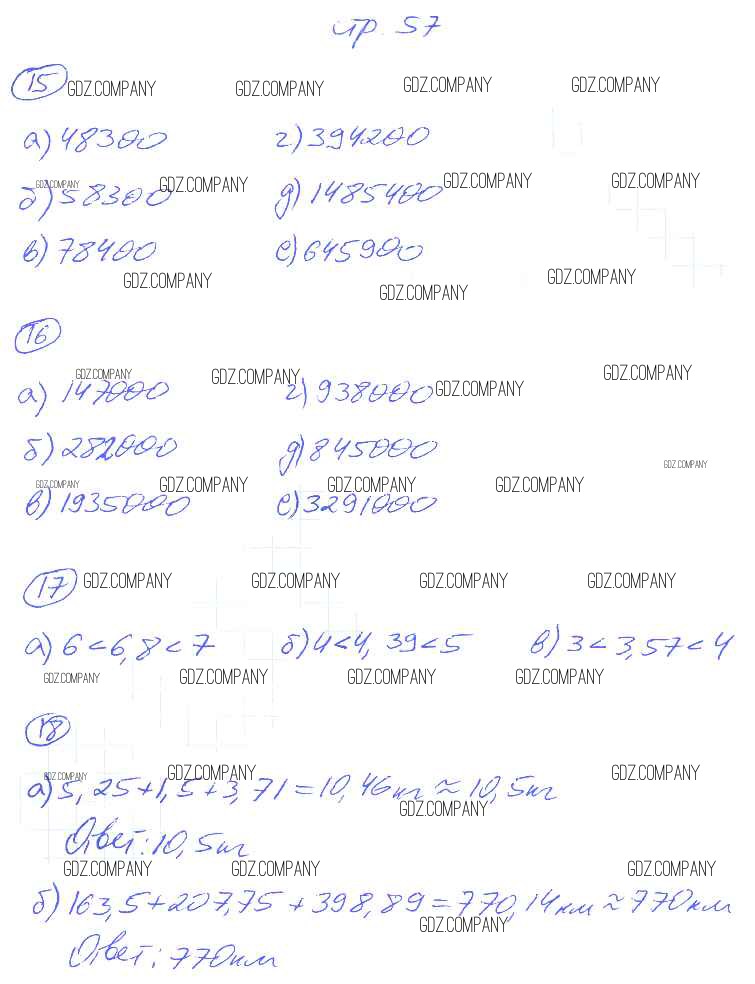 стр. 57
15 GDZ.COMPANY GDZ.COMPANY GDZ.COMPANY GDZ.COMPANY
а) 48300 г) 394200
б) 58300 д) 1485400
GDZ.COMPANY GDZ.COMPANY GDZ.COMPANY GDZ.COMPANY
в) 78400 е) 645900
GDZ.COMPANY GDZ.COMPANY GDZ.COMPANY
16
GDZ.COMPANY GDZ.COMPANY GDZ.COMPANY GDZ.COMPANY
а) 147000 г) 938000
б) 282000 д) 845000
GDZ.COMPANY
GDZ.COMPANY GDZ.COMPANY GDZ.COMPANY GDZ.COMPANY
в) 1935000 е) 3291000
17 GDZ.COMPANY GDZ.COMPANY GDZ.COMPANY GDZ.COMPANY
а) 6 < 6,8 < 7 б) 4 < 4,39 < 5 в) 3 < 3,57 < 4
GDZ.COMPANY GDZ.COMPANY GDZ.COMPANY GDZ.COMPANY
18
GDZ.COMPANY GDZ.COMPANY GDZ.COMPANY
а) 5,25 + 1,5 + 3,71 = 10,46 кг ≈ 10,5 кг
GDZ.COMPANY
Ответ: 10,5 кг
GDZ.COMPANY GDZ.COMPANY GDZ.COMPANY
б) 163,5 + 207,75 + 398,89 = 770,14 км ≈ 770 км
GDZ.COMPANY
Ответ: 770 км